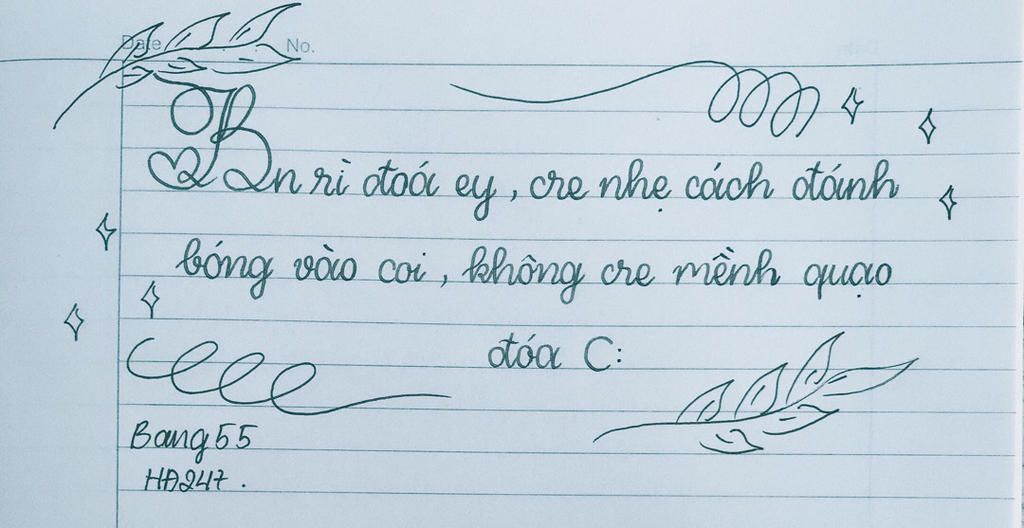 Date No.
Bn rì đoá ey, cre nhẹ cách đánh
bóng vào coi, không cre mềnh quạo
đóa C:
Bang 55
HĐ247.